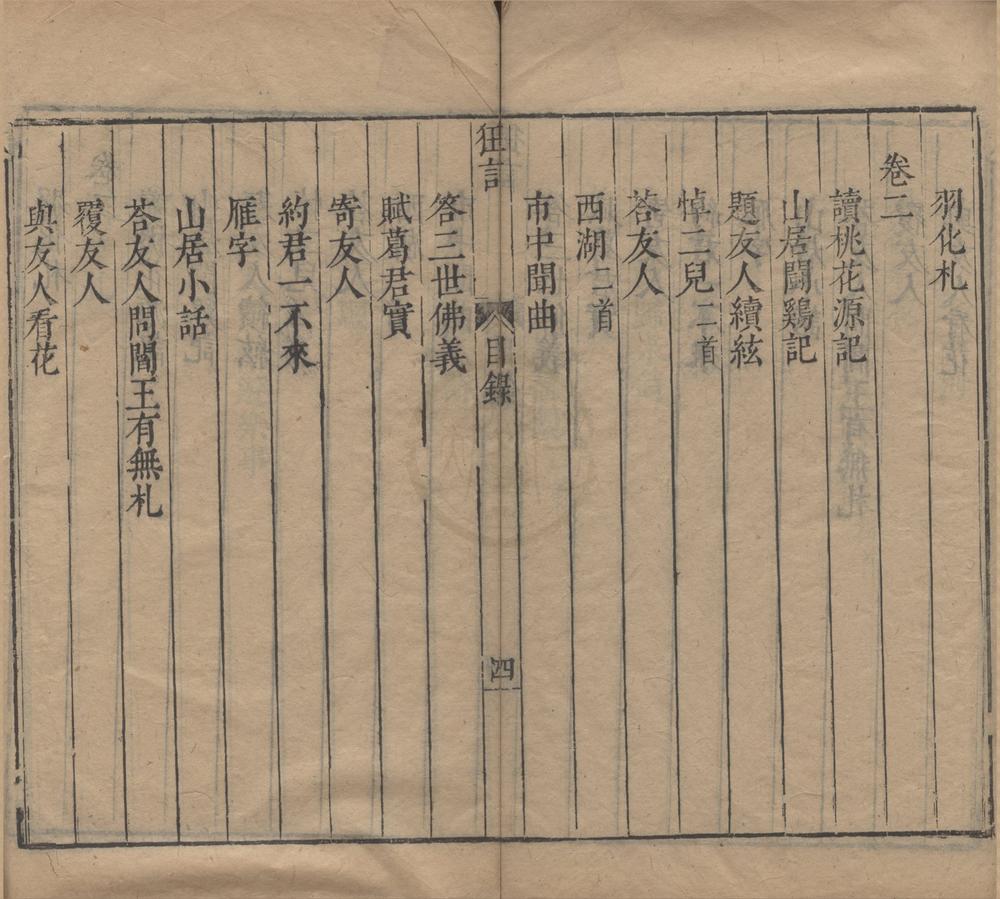 羽化札
卷二
讀桃花源記
山居鬭鷄記
題友人續絃
悼二兒二首
荅友人
西湖二首
市中聞曲
狂言
目錄
四
答三世佛義
賦葛君實
寄友人
約君一不來
雁字
山居小話
荅友人問閻王有無札
覆友人
與友人看花